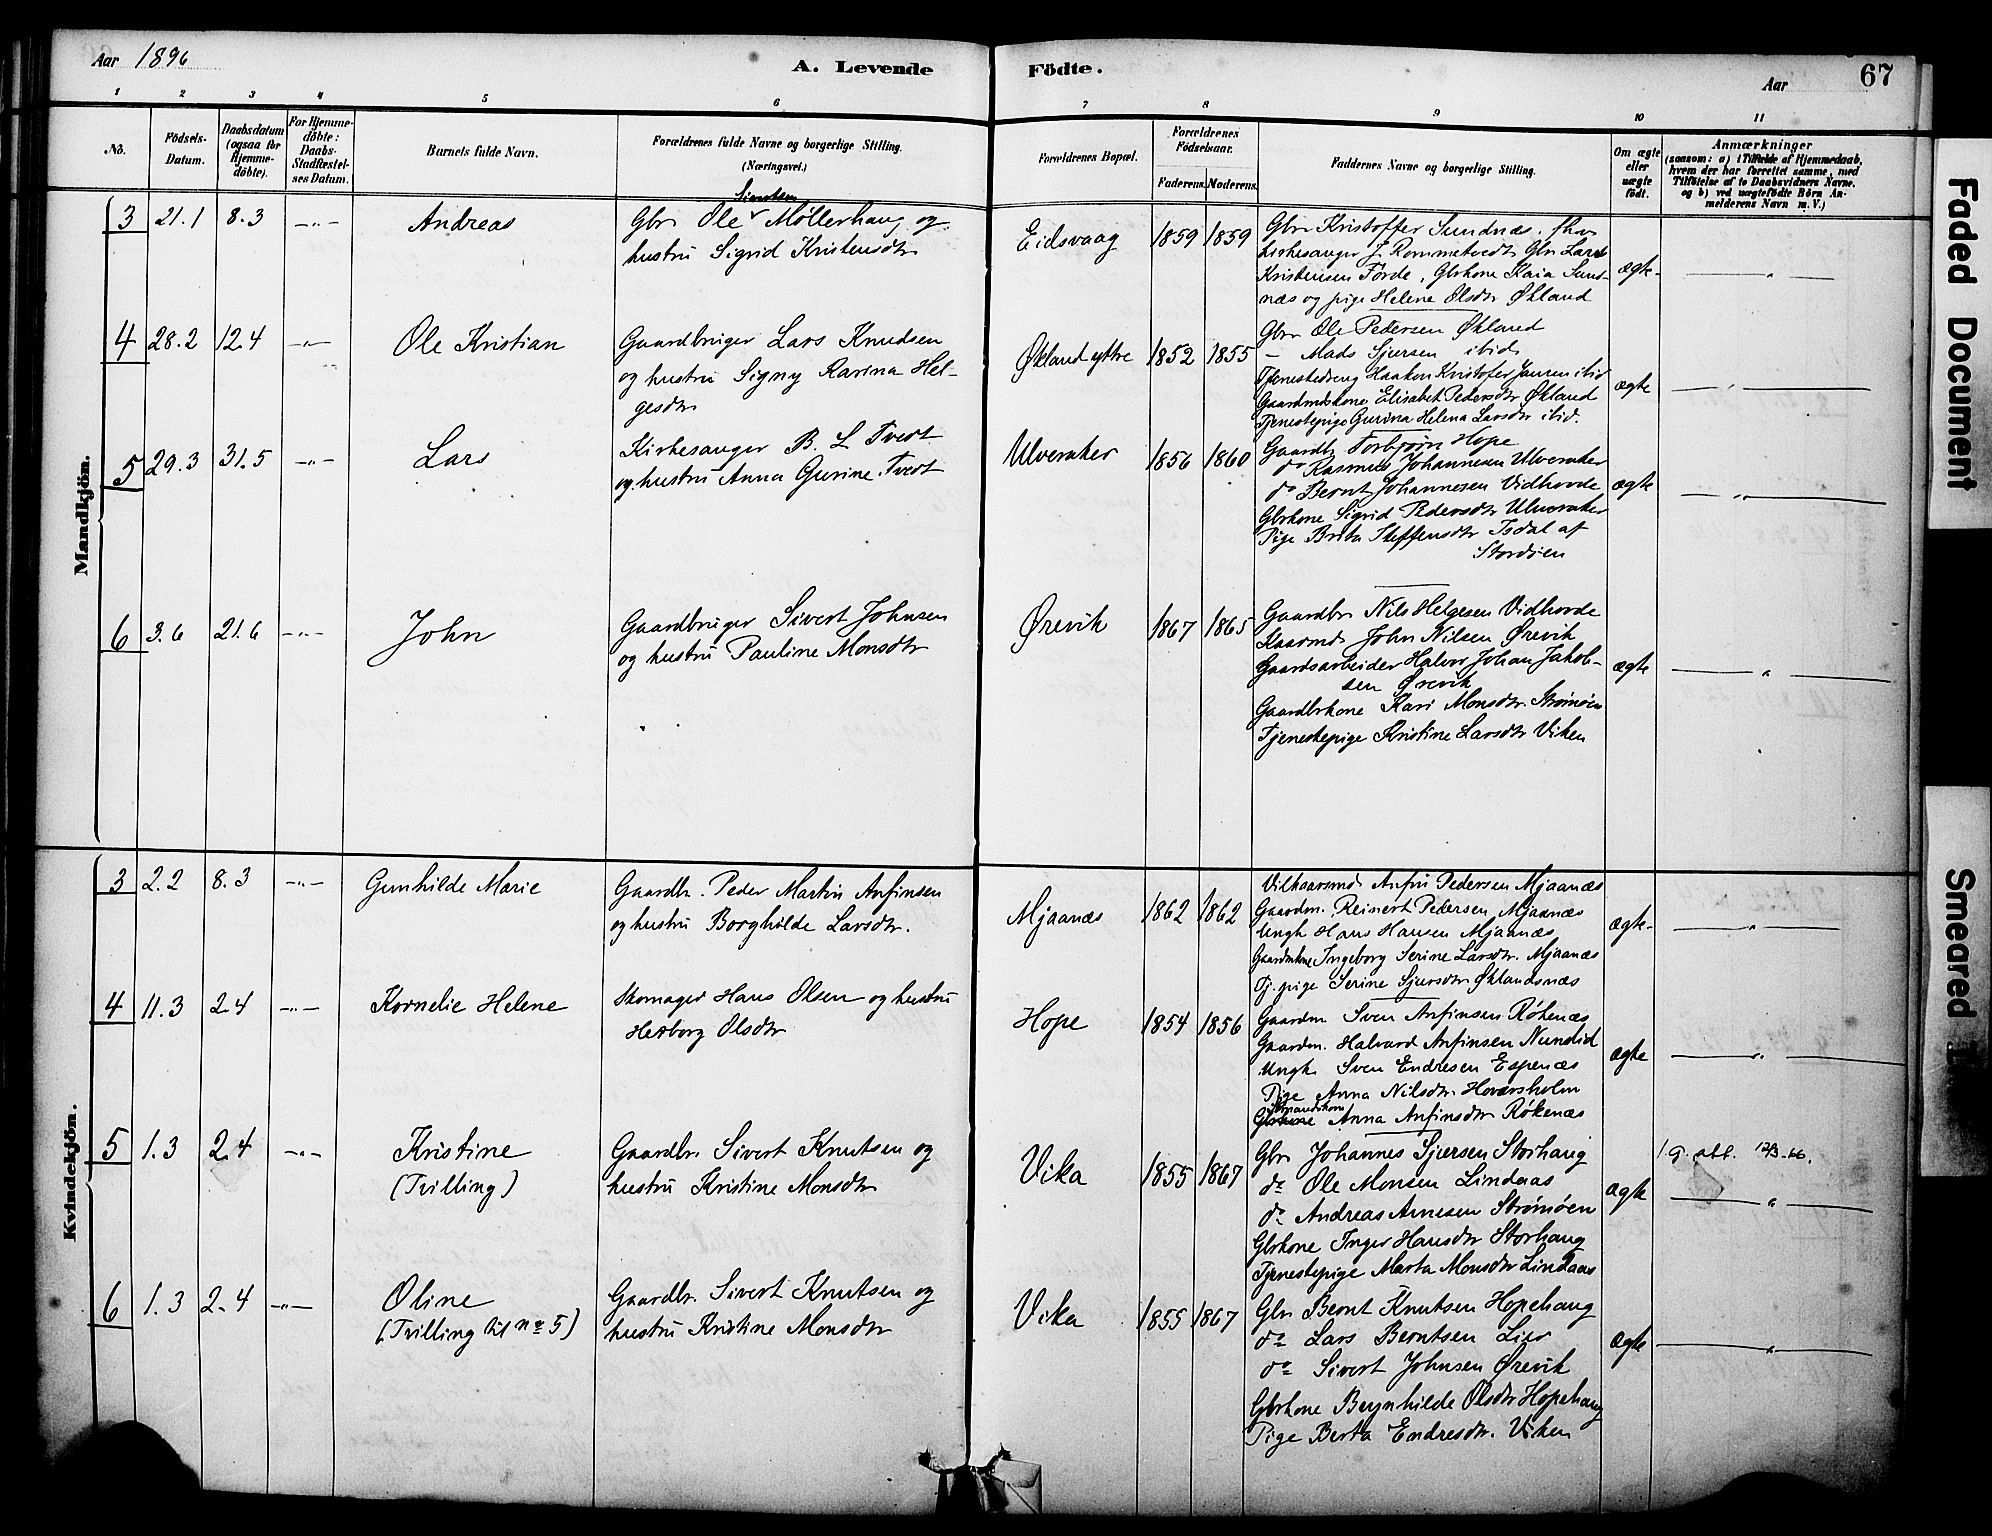 Aar 1896
A. Levende
Födte.
Aar
67
1 2 3 4 5 6 7 8 9 10 11
No.
Födsels-Datum.
Daabsdatum (ogsaa for Hjemme-döbte).
For Hjemme-döbte: Daabs-Stadfæstel-ses Datum.
Barnets fulde Navn.
Forældrenes fulde Navne og borgerlige Stilling. (Næringsvei.)
Forældrenes Bopæl.
Forældrenes Födselsaar.
Faderens. Moderens.
Faddernes Navne og borgerlige Stilling.
Om ægte eller uægte födt.
Anmærkninger
(saasom: a) i Tilfælde af Hjemmedaab,
hvem der har forrettet samme, med
Tilföielse af to Daabsvidners Navne.
og b) ved uægtefödte Börn An-
melderens Navn m. V.)
Mandkjön.
3 21.1 8.3 —"— Andreas
Sivertsen
Gbr Ole Møllerhaug og
hustru Sigrid Kristensdtr
Eidsvaag 1859 1859
Gbr Kristoffer Sundnæs, fhv
kirkesanger J. Rommetvedt Gbr Lars
Kristensen Förde, Gbrkone Kaia Sund-
næs og pige Helene Olsdtr Økland
ægte — " —
4 28.2 12.4 —"— Ole Kristian
Gaardbruger Lars Knudsen
og hustru Signy Karina Hel-
gesdtr
Økland yttre 1852 1855
Gbr Ole Pedersen Økland
— Mads Sjursen ibid
Tjenestedreng Haakon Kristofer Jansen ibid
Gaardmdskone Elisabet Pedersdtr Økland
Tjenestepige Gurina Helena Larsdtr ibid.
ægte — " —
5 29.3 31.5 —"— Lars
Kirkesanger B. L. Tvedt
og hustru Anna Gurine Tvedt
Ulveraker 1856 1860
Gaardbr Torbjörn Hope
do Rasmus Johannesen Ulveraker
do Bernt Johannesen Vidhovde
Gbrkone Sigrid Pedersdtr Ulveraker
Pige Brita Steffensdtr Isdal af
Stordöen
ægte — " —
6 3.6 21.6 —"— John
Gaardbruger Sivert Johnsen
og hustru Pauline Monsdtr
Ørevik 1867 1865
Gaardbr Nils Helgesen Vidhovde
Kaarmd John Nilsen Ørevik
Gaardsarbeider Halvor Johan Jakob-
sen Ørevik
Gaardbrkone Kari Monsdtr. Strømöen
Tjenestepige Kristine Larsdtr Viken
ægte — " —
Kvindekjön.
3 2.2 8.3 —"— Gunhilde Marie
Gaardbr. Peder Martin Anfinsen
og hustru Borghilde Larsdtr.
Mjaanæs 1862 1862
Vilkaarsmd Anfin Pedersen Mjaanæs
Gaardm. Reinert Pedersen Mjaanæs
Ungk Hans Hansen Mjaanæs
Gaardmkone Ingeborg Serine Larsdtr. Mjaanæs
Tj. pige Serine Sjursdtr Øklandsnæs
ægte — " —
4 11.3 2.4 —"— Kornelie Helene
Skomager Hans Olsen og hustru
Herborg Olsdtr
Hope 1854 1856
Gaardm. Sven Anfinsen Rökenæs
Gaardm. Halvard Anfinsen
Ungk. Sven Endresen Espenæs
Pige Anna Nilsdtr. Hoversholm
Anna Anfinsdtr Rökenæs
ægte — " —
5 1.3 2.4 —"— Kristine
(Tvilling)
Gaardbr. Sivert Knutsen og
hustru Kristine Monsdtr
Vika 1855 1867
Gbr Johannes Sjursen Storhaug
do Ole Monsen Lindaas
do Andreas Arnesen Strömöen
Gbrkone Inger Hansdtr Storhaug
Tjenestepige Marta Monsdtr Lindaas
ægte
— " —
6 1.3 2.4 —"— Oline
(Tvilling til no 5)
Gaardbr. Sivert Knutsen og
hustru Kristine Monsdtr
Vika 1855 1867
Gbr Bernt Knutsen Hopehaug
do Lars Berntsen Lier
do Sivert Johnsen Ørevik
Gbrkone Brynhilde Olsdtr Hopehaug
Pige Berta Endresdtr. Viken
ægte — " —
Faded Document
Smeared